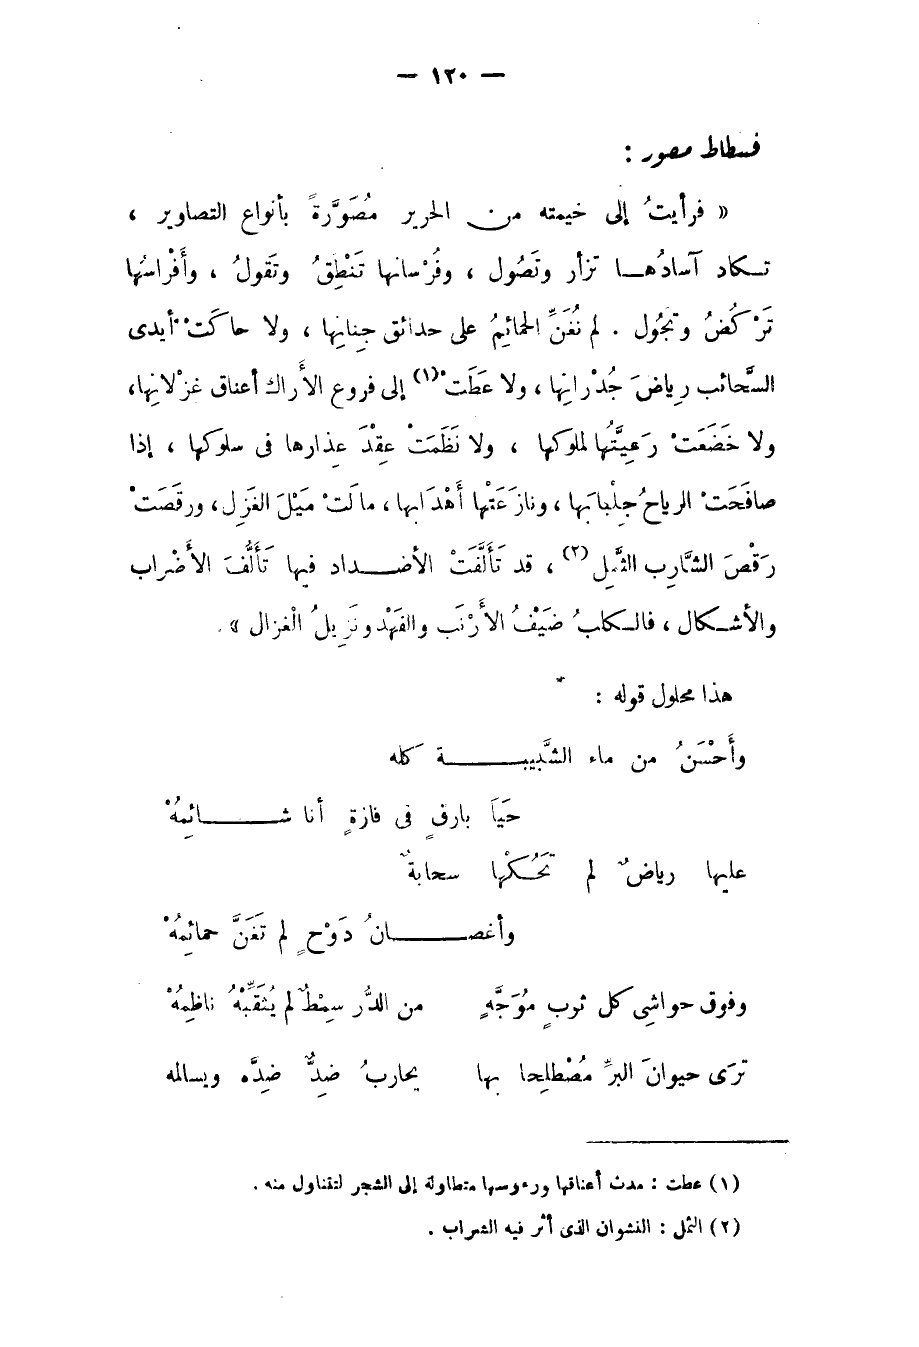 — ١٢٠ —
فسطاط مصور :
« فرأيتُ إلى خيمته من الحرير مُصَوَّرةً بأنواع التصاوير ،
تكاد آسادُها تزأر وتَصُول ، وفُرْسانها تَنْطِقُ وتَقولُ ، وأَفْراسُها
تَرْكُضُ وتجُول . لم تُغَنِّ الحمائمُ على حدائق جِنانِها ، ولا حاكَتْ أيدى
السَّحائب رِياضَ جُدْرانِها ، ولا عَطَتْ(١) إلى فروع الأَراك أعناق غزْلانِها،
ولا خَضَعَتْ رَعِيَّتُها لملوكِها ، ولا نَظَمَتْ عِقْدَ عِذارها فى سلوكِها ، إذا
صافَحَتْ الرياحُ جِلْبابَها ، ونازَعَتْها أَهْدَابها ، مالَتْ مَيْلَ الغَزِل ، ورقَصَتْ
رَقْصَ الشَّارِب الثَّمِل(٢) ، قد تَأَلَّفَتْ الأضداد فيها تَأَلُّفَ الأَضْراب
والأشكال ، فالكلبُ ضَيْفُ الأَرْنَب والفَهْد ونَزِيلُ الْغزال » .
هذا محلول قوله :
وأَحْسَنُ من ماء الشَّبيبة كله
حَيَا بارِقٍ فى فازةٍ أنا شائِمُهْ
عليها رياضٌ لم تَحُكْها سحابةٌ
وأغصانُ دَوْحٍ لم تَغَنَّ حمائِمُهْ
وفوق حواشِى كل ثوبٍ مُوَجَّهٍ من الدُّر سِمْطٌ لم يُثَقِّبْهُ ناظِمُهْ
تَرَى حيوانَ البرِّ مُصْطلِحا بها يحاربُ ضِدٌّ ضِدَّه ويسالمه
(١) عطت : مدت أعناقها ورءوسها متطاولة إلى الشجر لتتناول منه .
(٢) الثمل : النشوان الذى أثر فيه الشراب .